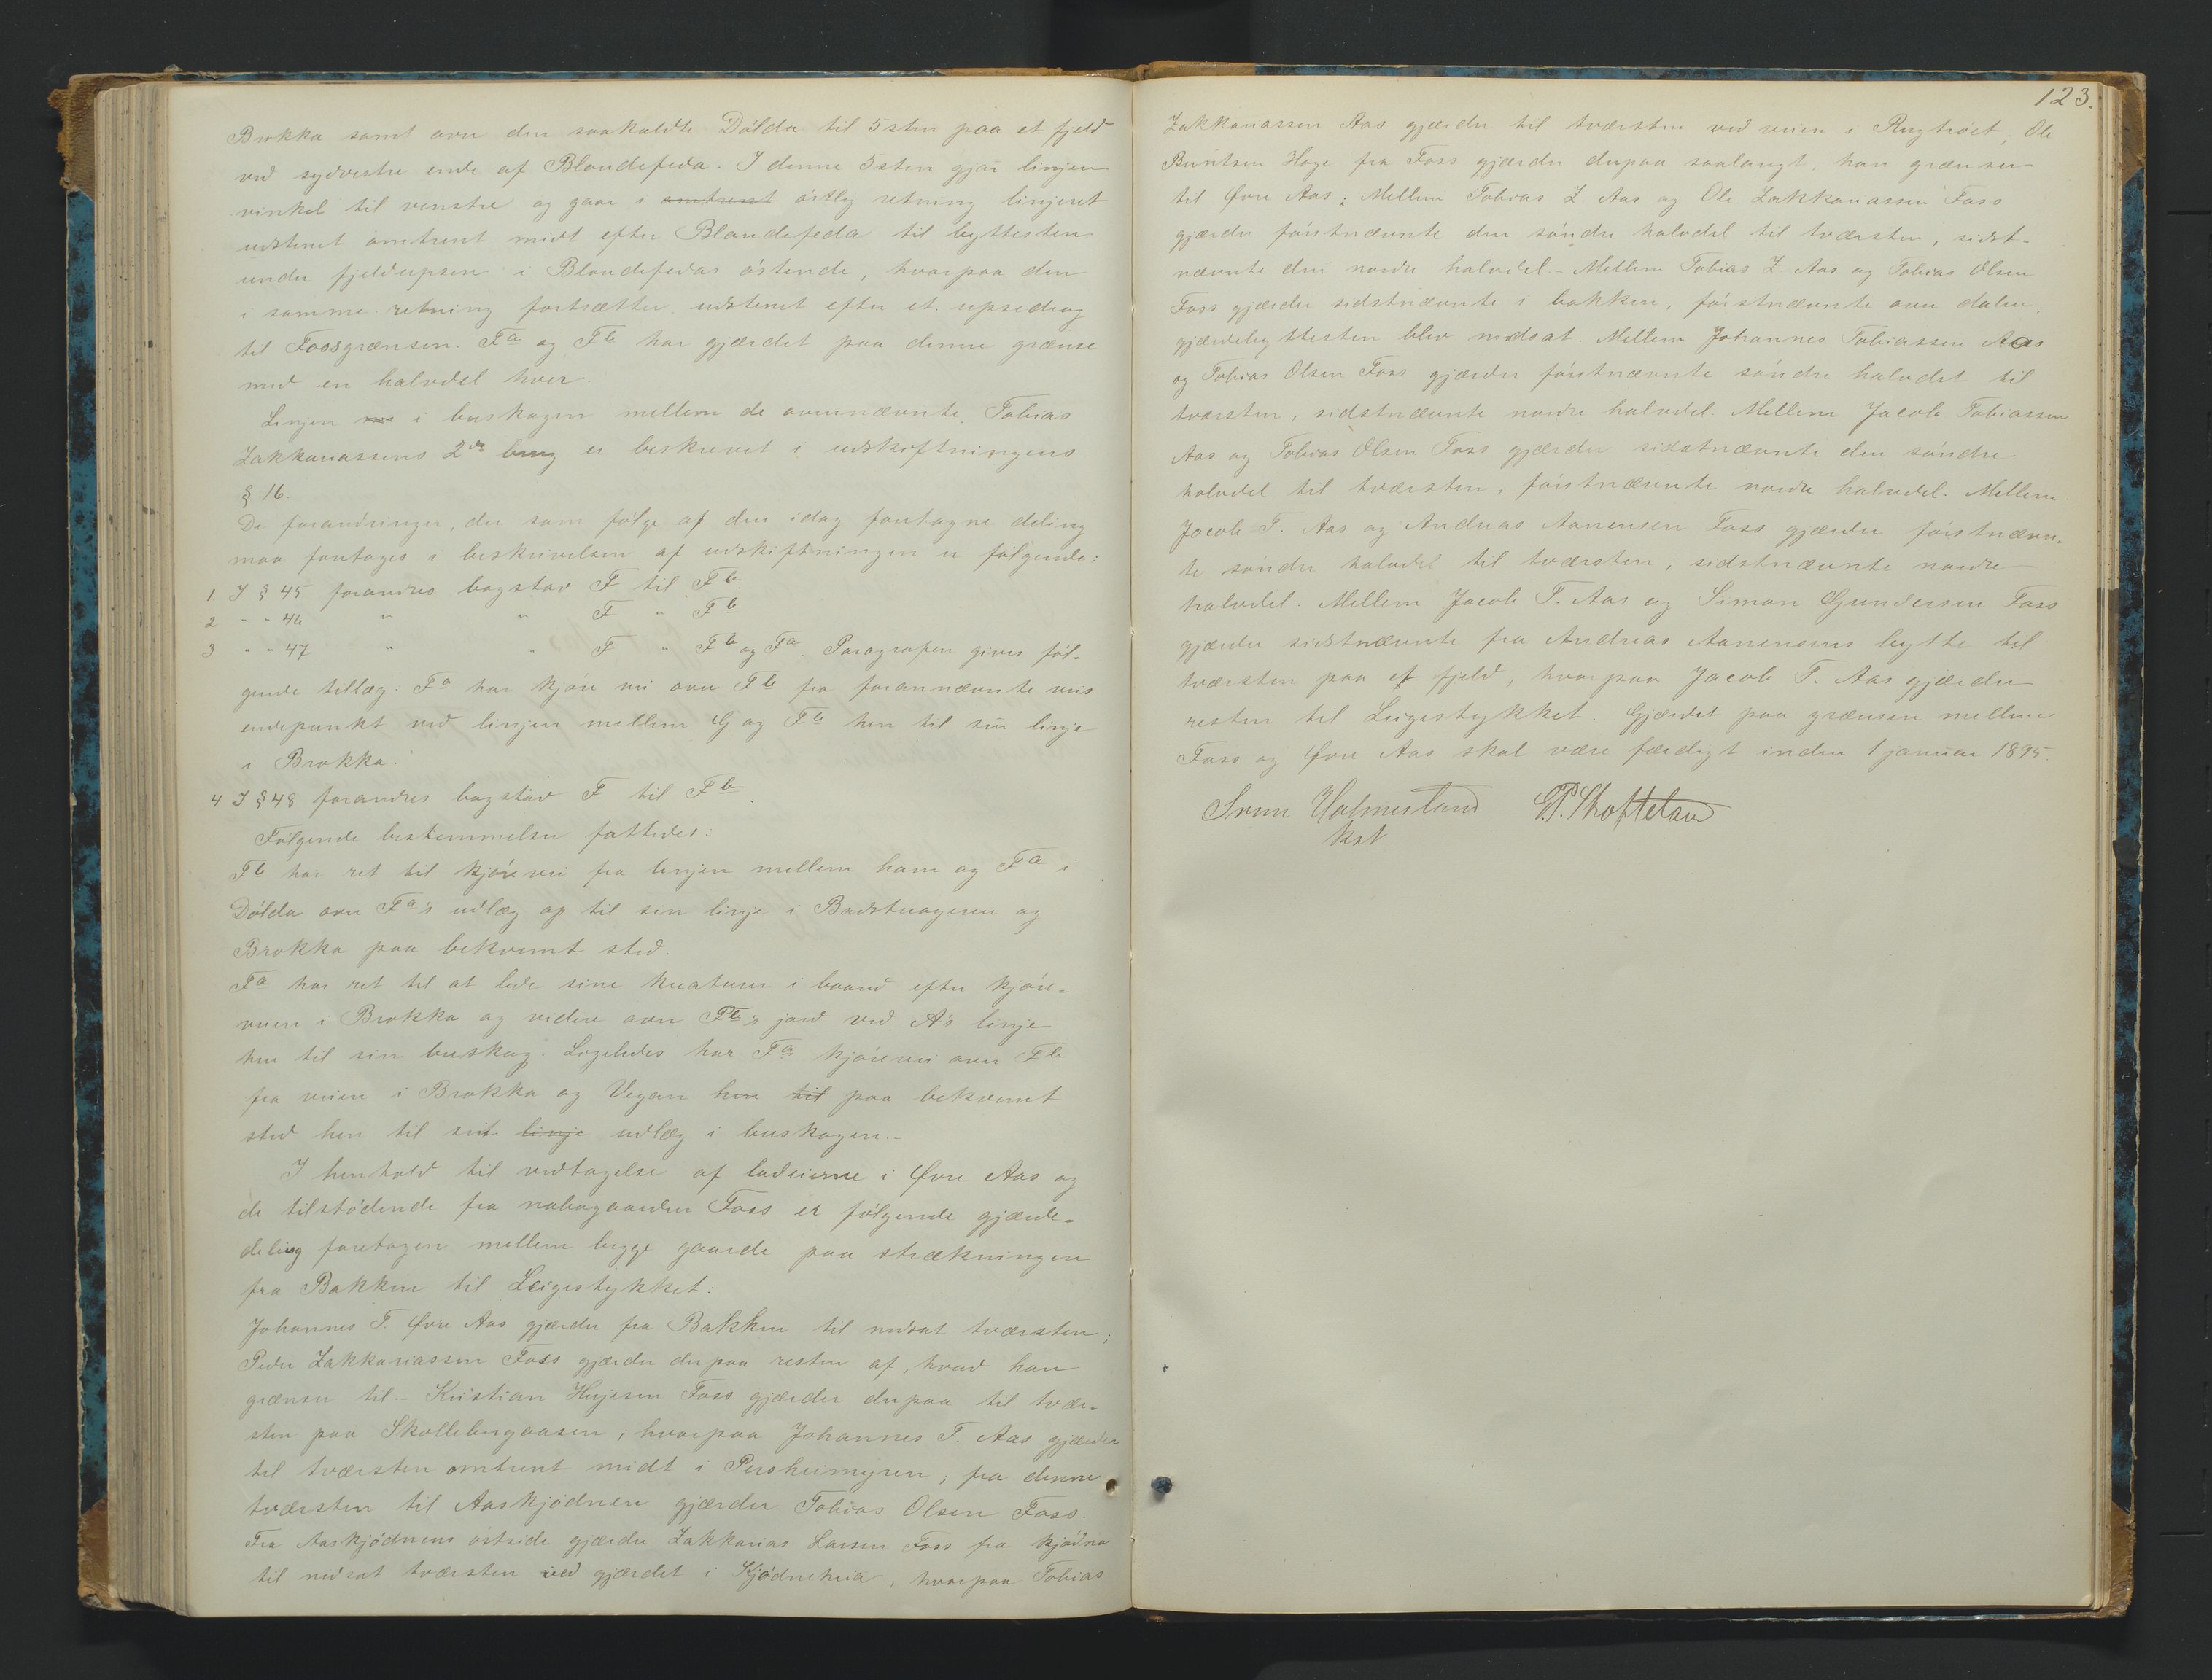 Brokka samt over den saakaldte Dölda til 5sten paa et fjeld
ved sydvestre ende af Blaudefeda. I denne 5sten gjör linjen
vinkel til venstre og gaar i omtrent östlig retning linjeret
udstenet omtrent midt efter Blaudefeda til byttesten
under fjeldupsen i Blaudefedas östende, hvorpaa den
i samme retning fortsætter udstenet efter et upsedrag
til Fossgrænsen. Fa og Fb har gjærdet paa denne grænse
med en halvdel hver.
Linjen i buskogen mellem de ovennævnte Tobias
Zakkariassens 2de brug er beskrevet i udskiftningens
§ 16.
De forandringer, der som fölge af den idag foretagne deling
maa foretages i beskrivelsen af udskiftningen er fölgende:
1 I § 45 forandres bogstav F til Fb
2 " " 46 " " F " Fb
3 " " 47 " " F " Fb og Fa. Paragrafen gives föl-
gende tillæg. Fa har kjöre vei over Fb fra forannævnte veis
endepunkt ved linjen mellem G og Fb hen til sin linje
i Brokka.
4 I § 48 forandres bogstav F til Fb.
Fölgende bestemmelser fattedes:
Fb har ret til kjörevei fra linjen mellem ham og Fa i
Dölda over Fa's udlæg op til sin linje i Badstuageren og
Brokka paa bekvemt sted.
Fa har ret til at lede sine kreaturer i baand efter kjöre-
veien i Brokka og videre over Fb's jord ved A's linje
hen til sin buskog. Ligeledes har Fa kjörevei over Fb
fra veien i Brokka og Vegan hen til paa bekvemt
sted hen til sit linje udlæg i buskogen.-
I henhold til vedtagelse af lodeierne i Øvre Aas og
de tilstödende fra nabogaarden Foss er fölgende gjærde-
deling foretagen mellem begge gaarde paa strækningen
fra Bakken til Leigestykket:
Johannes T. Øvre Aas gjærder fra Bakken til nedsat tværsten;
Peder Zakkariassen Foss gjærder derpaa resten af, hvad han
grænser til.- Kristian Hujesen Foss gjærder derpaa til tvær-
sten paa Skollebergaasen; hvorpaa Johannes T. Aas gjærder
til tværsten omtrent midt i Persheimyren; fra denne
tværsten til Aaskjödnen gjærder Tobias Olsen Foss.
Fra Aaskjödnens östside gjærder Zakkarias Larsen Foss fra kjödna
til nedsat tværsten ved gjærdet i Kjödneheia, hvorpaa Tobias
123.
Zakkariassen Aas gjærder til tværsten ved veien i Rugtröet; Ole
Berntsen Hage fra Foss gjærder derpaa saalangt, han grænser
til Øvre Aas; Mellem Tobias Z. Aas og Ole Zakkariassen Foss
gjærder förstnævnte den söndre halvdel til tværsten, sidst-
nævnte den nordre halvdel.- Mellem Tobias Z. Aas og Tobias Olsen
Foss gjærder sidstnævnte i bakken, förstnævnte over dalen;
gjærdebyttesten blev nedsat. Mellem Johannes Tobiassen Aas
og Tobias Olsen Foss gjærder förstnævnte söndre halvdel til
tværsten, sidstnævnte nordre halvdel. Mellem Jacob Tobiassen
Aas og Tobias Olsen Foss gjærder sidstnævnte den söndre
halvdel til tværsten, förstnævnte nordre halvdel. Mellem
Jacob T. Aas og Andreas Aanensen Foss gjærder förstnævn-
te söndre halvdel til tværsten, sidstnævnte nordre
halvdel. Mellem Jacob T. Aas og Simon Gundersen Foss
gjærder sidstnævnte fra Andreas Aanensens bytte til
tværsten paa et fjeld, hvorpaa Jacob T. Aas gjærder
resten til Leigestykket. Gjærdet paa grænsen mellem
Foss og Øvre Aas skal være færdigt inden 1 januar 1895.
Sven Holmesland G.P. Skofteland
kst